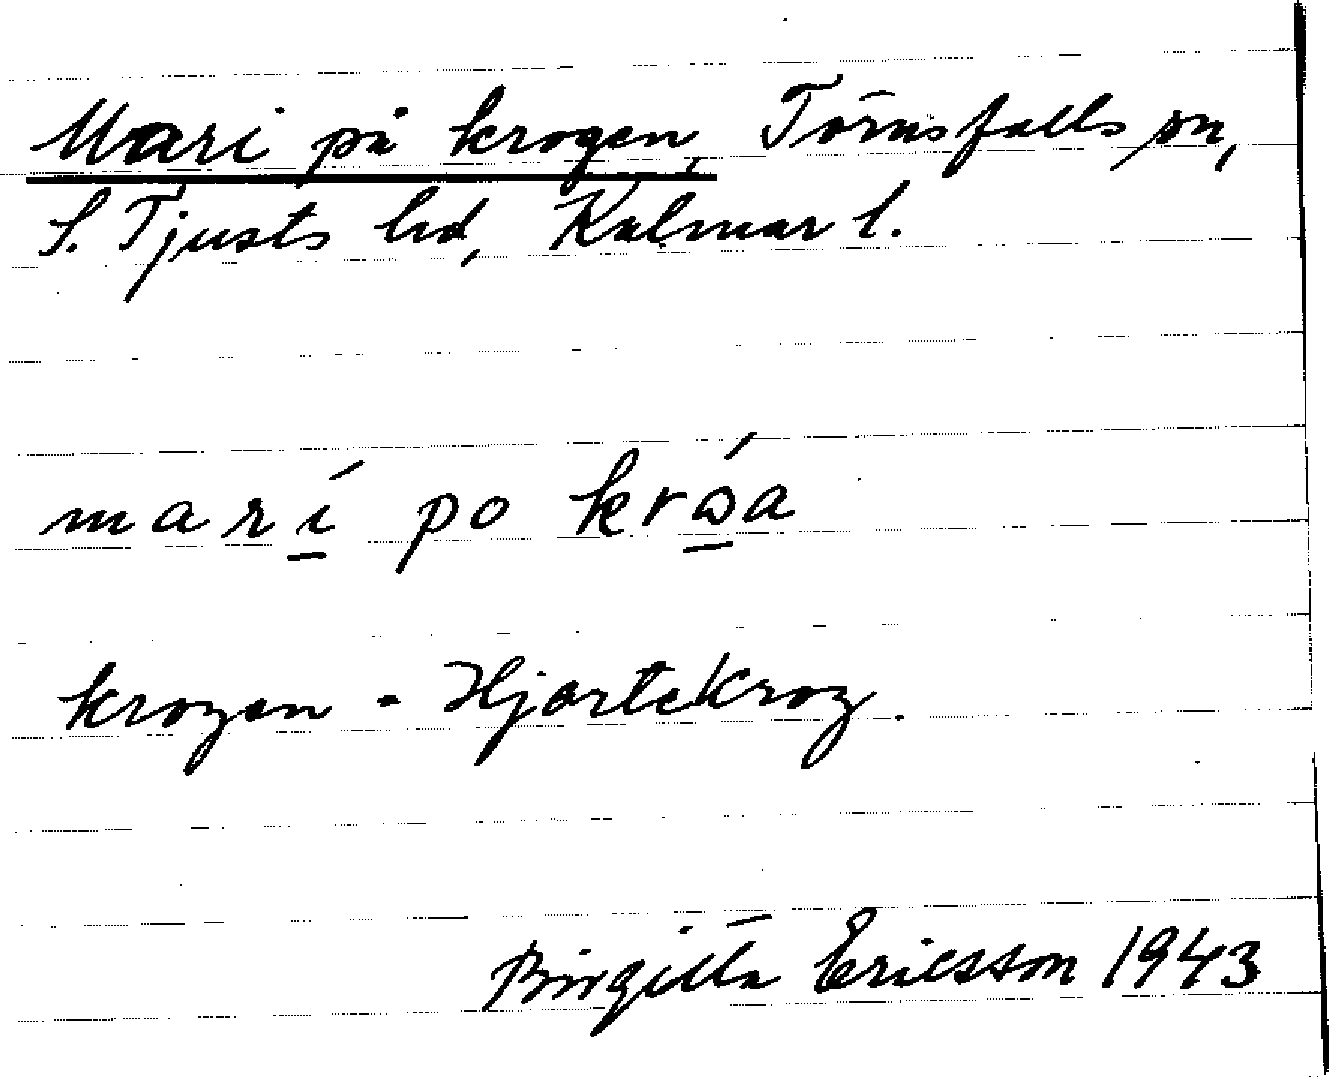 Mari på krogen, Törnsfalls sn,
S. Tjusts hd, Kalmar l.
marí po krɷ́a
krogen - Hjortekrog.
Birgitta Ericsson 1943